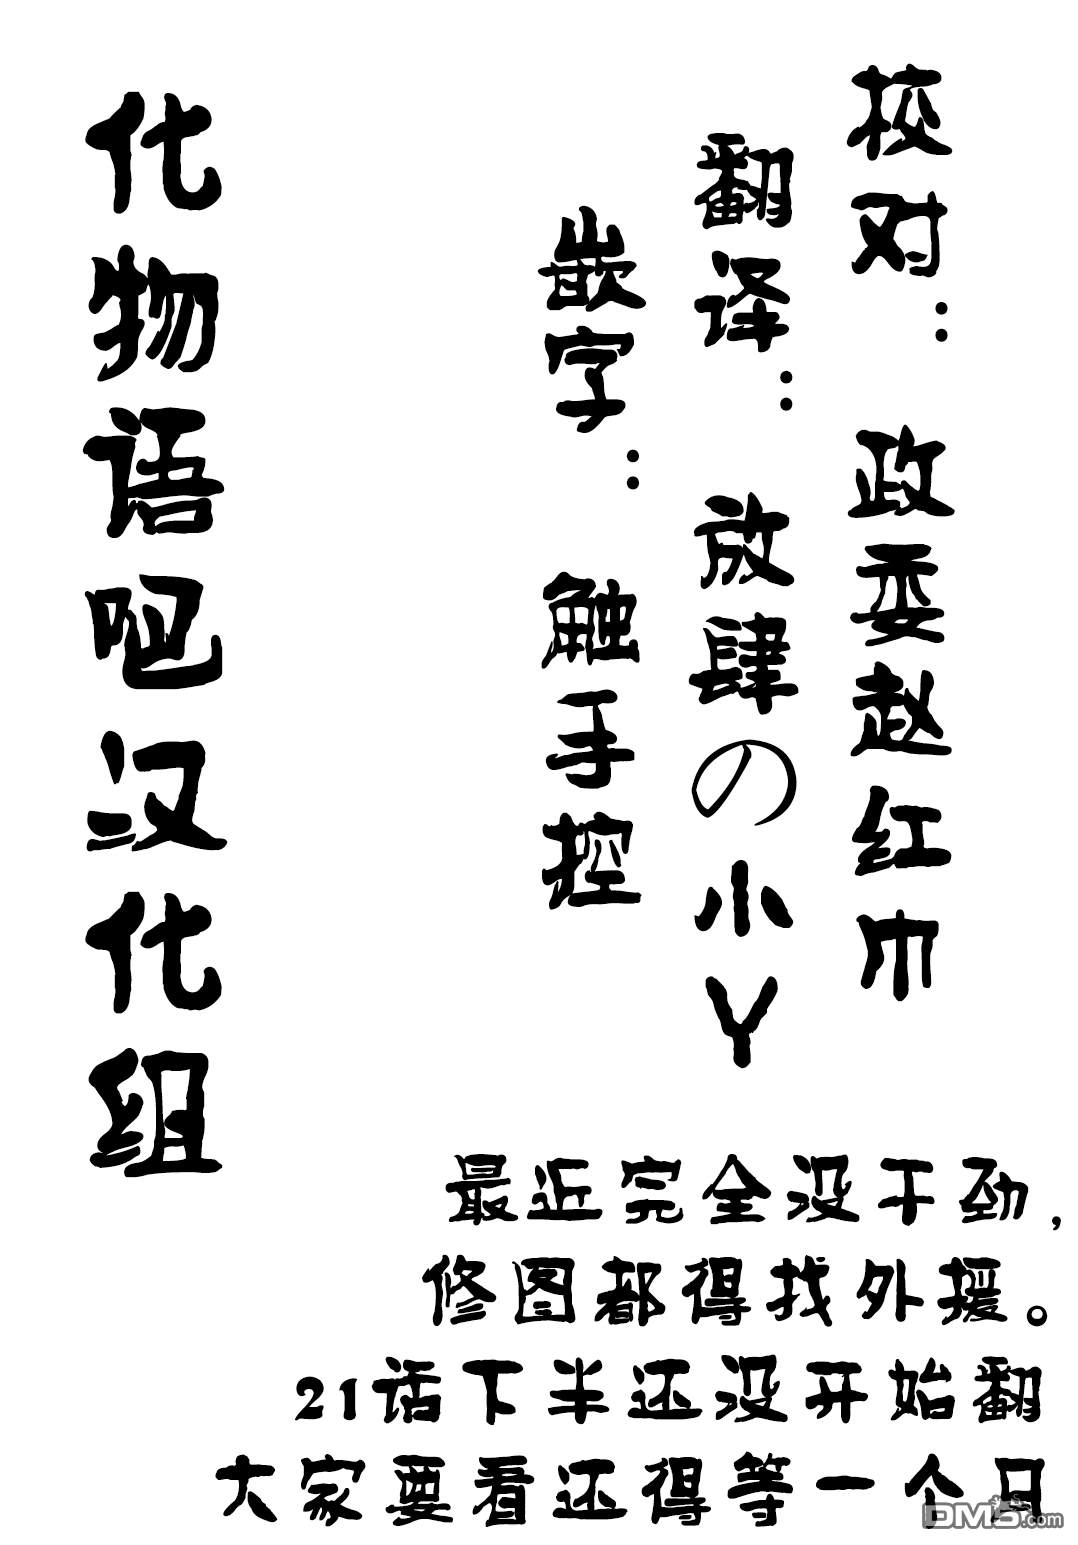 校对：政委赵红巾
翻译：放肆の小Y
嵌字：触手控
化物语吧汉化组
最近完全没干劲，
修图都得找外援。
21话下半还没开始翻
大家要看还得等一个月
DM5.com